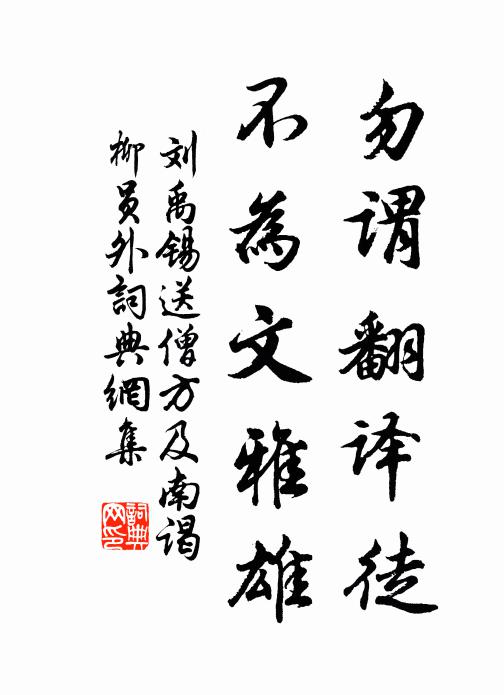 勿谓翻译徒
不為文雅雄
刘禹锡送僧方及南谒
柳員外詞典網集
詞典
网印